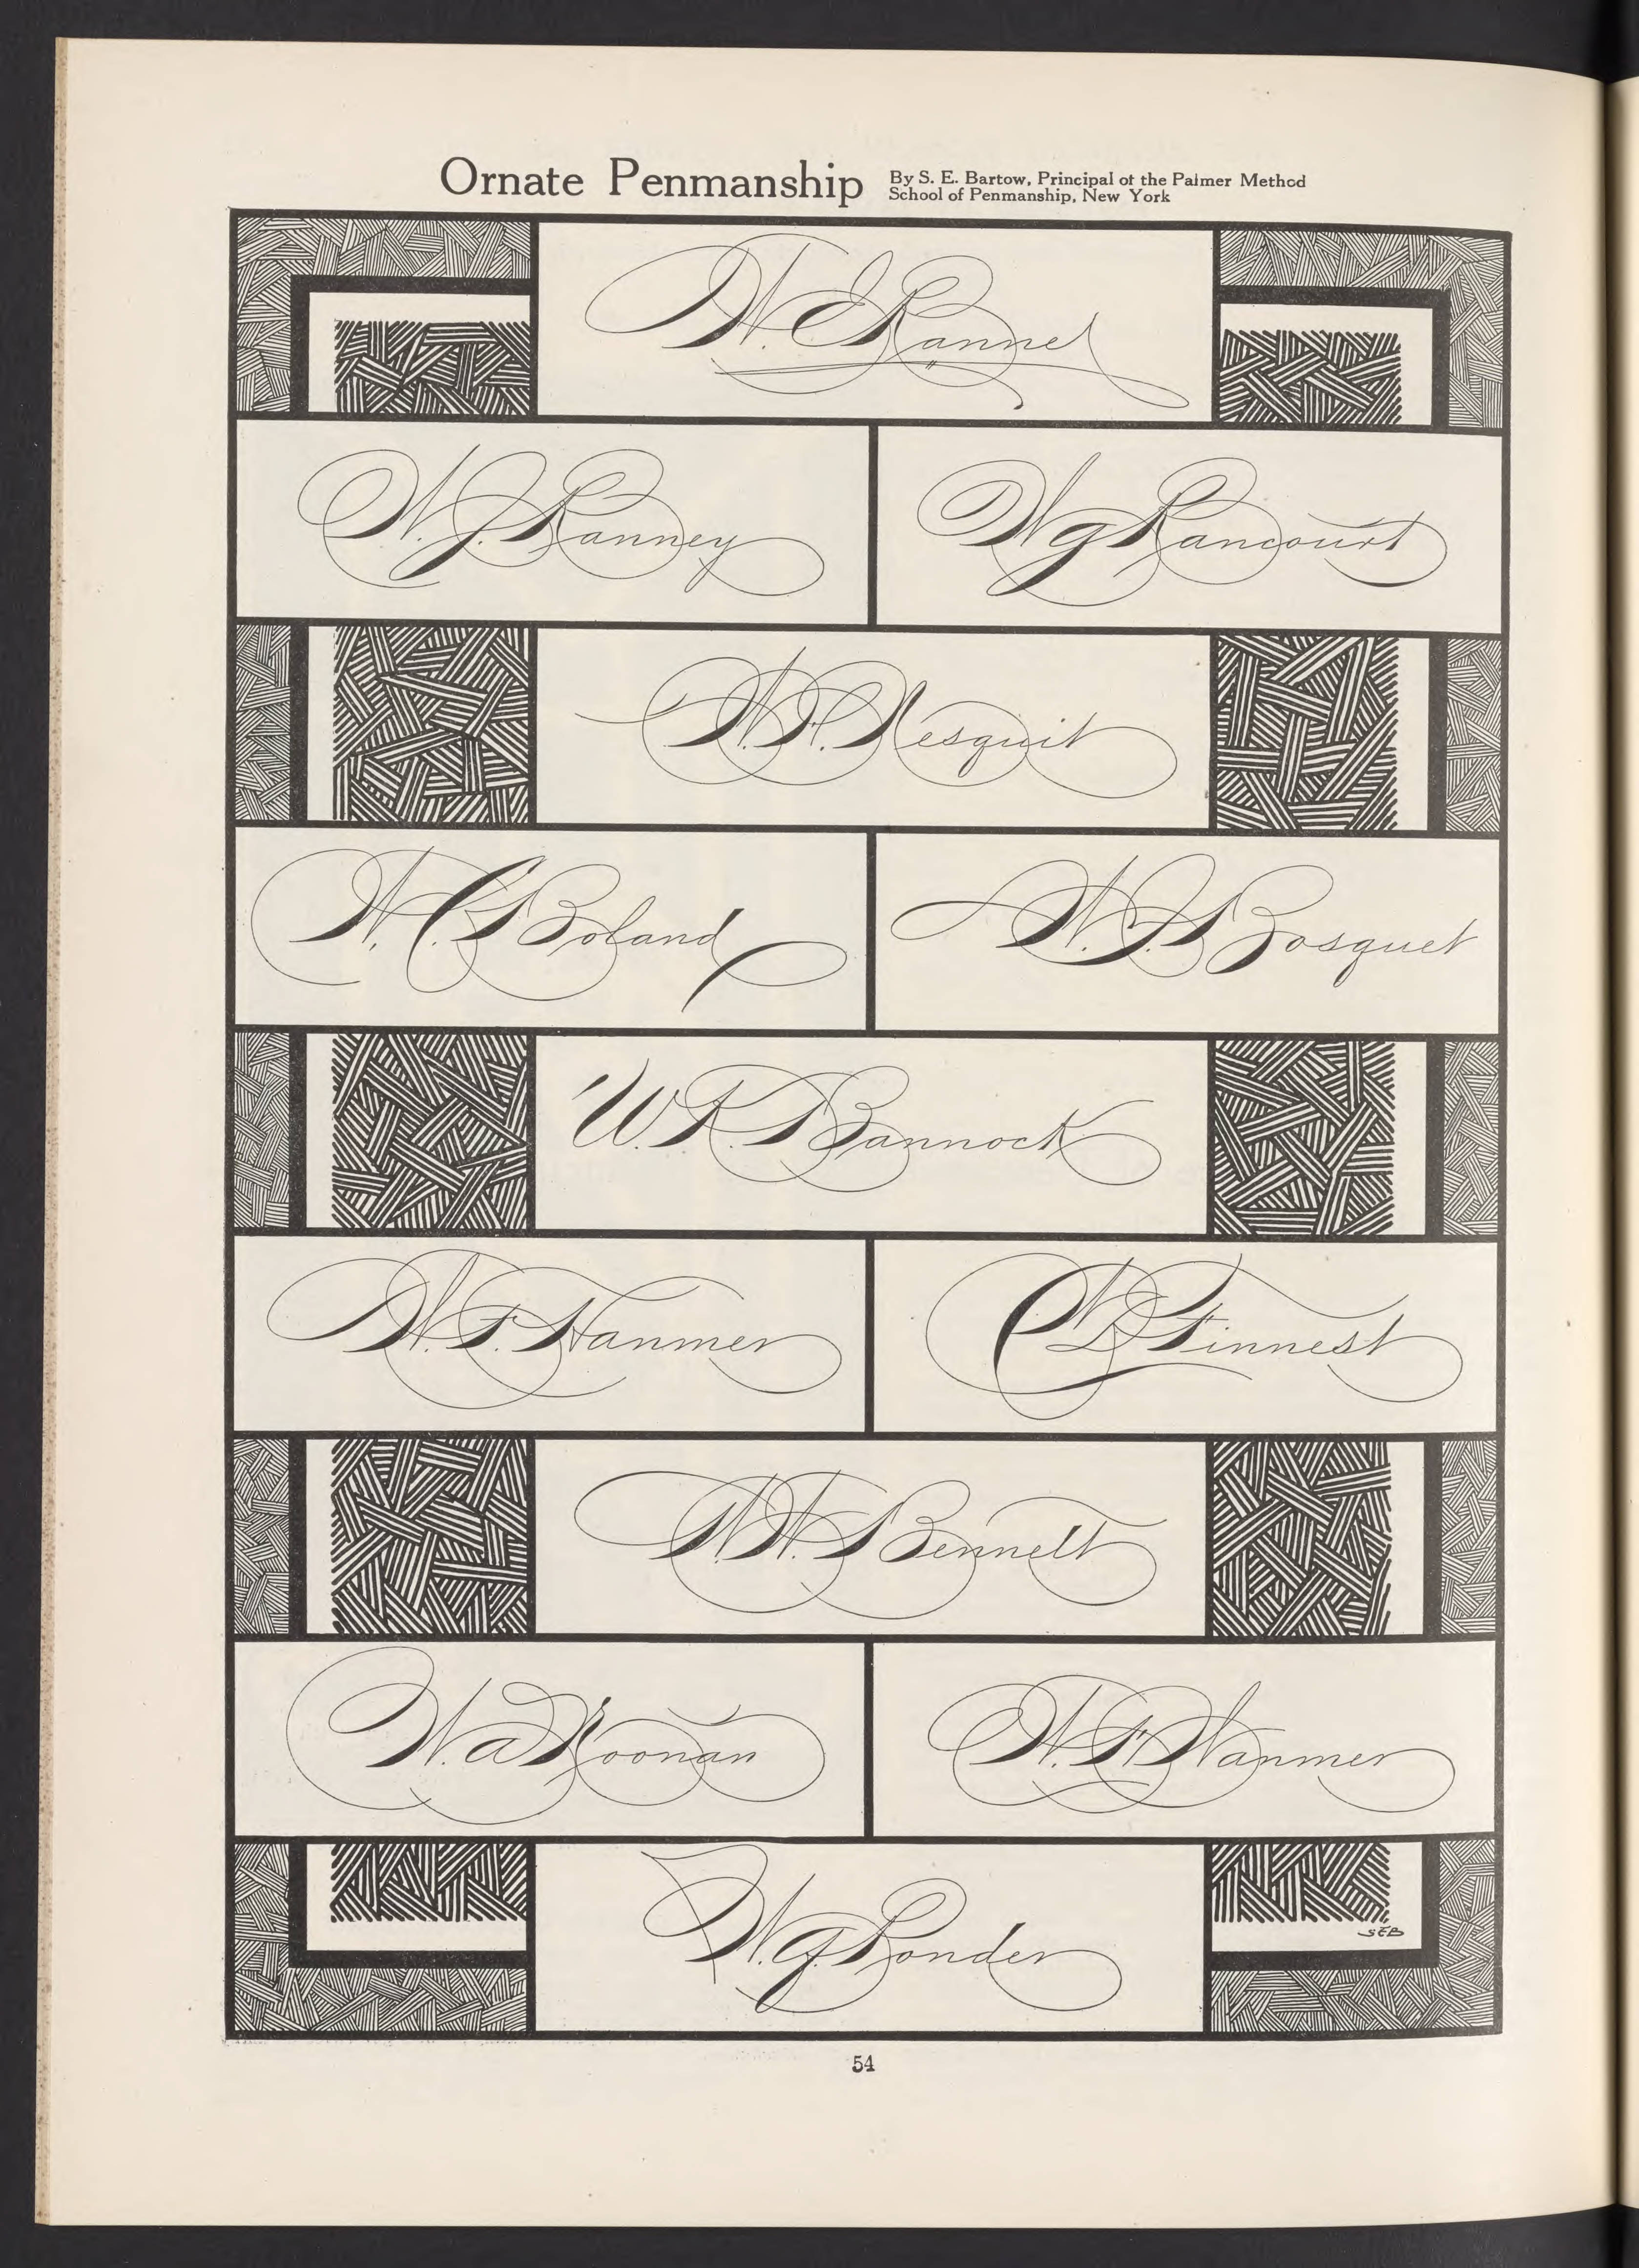 Ornate Penmanship
By S. E. Bartow, Principal of the Palmer Method
School of Penmanship, New York
W. E. Rannel
W. J. Ranney
W g Rancourt
W. P. Nesquit
W. C. Boland
W. J. Bosquet
W. R. Bannock
W. F. Hanmer
W P Finnest
W. W. Bennett
W. a Koonan
W. F. Wanmer
W. g. Ponder
SEB
54